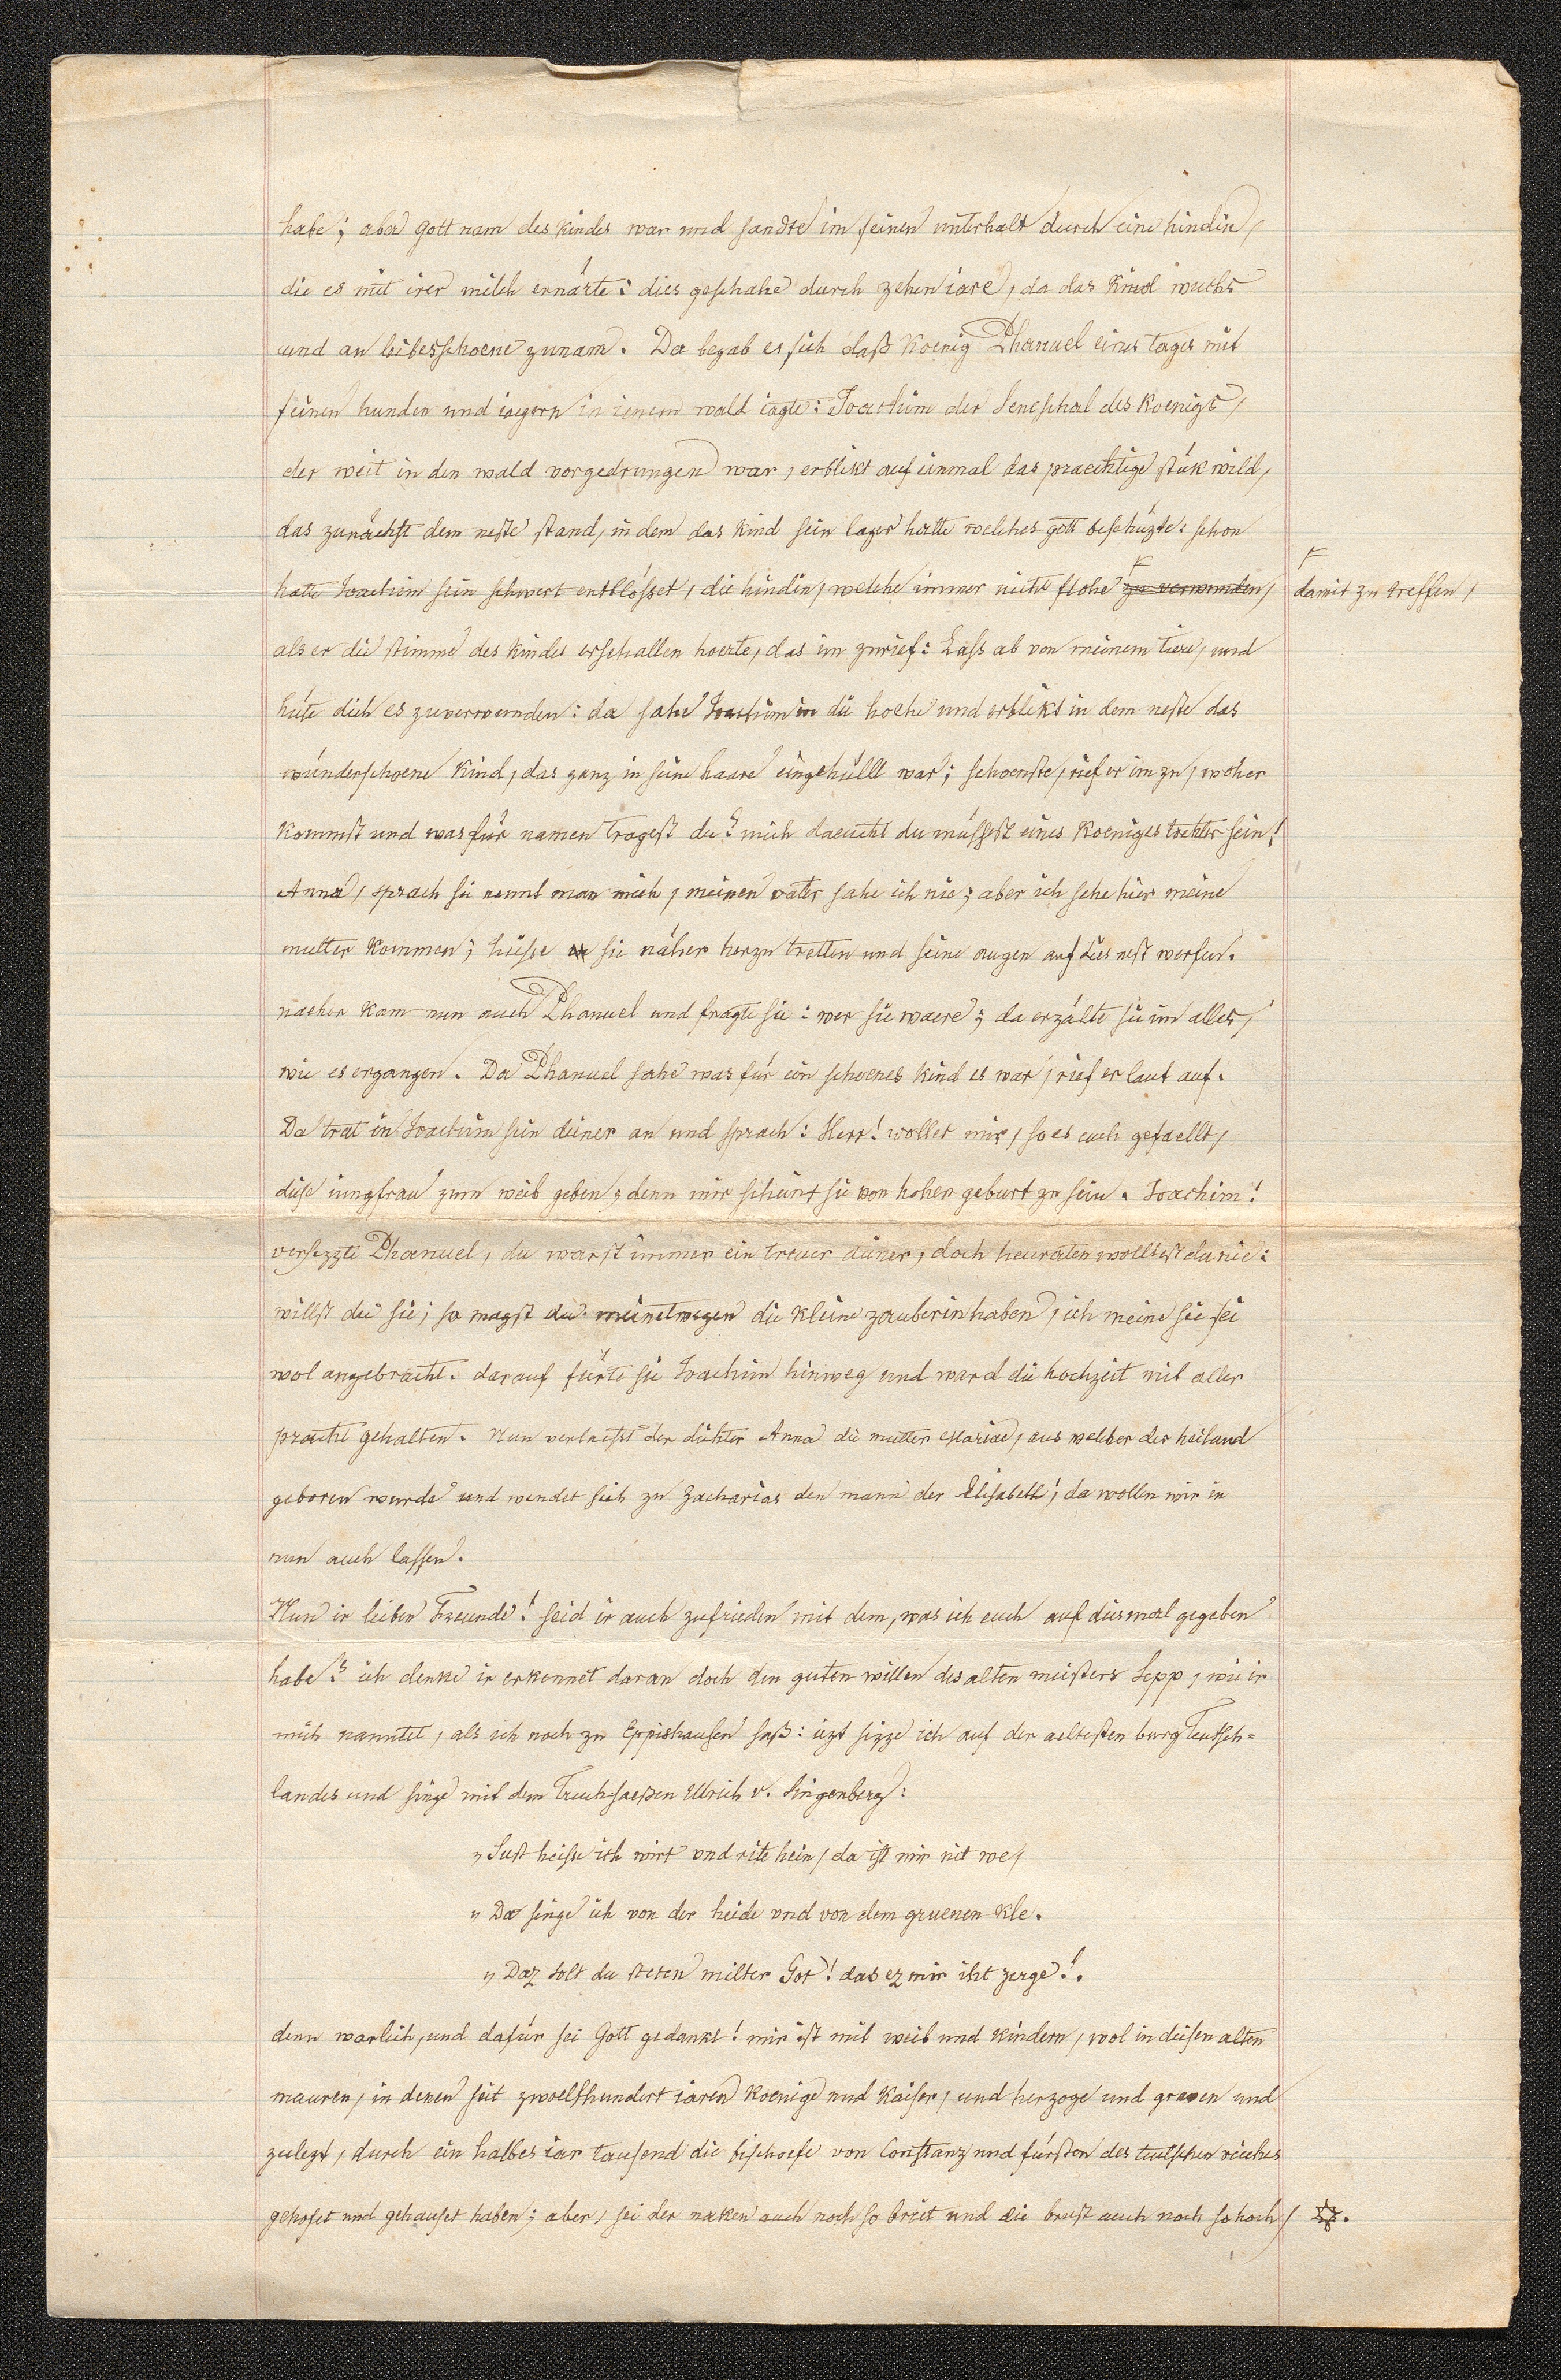 habe; aber gott nam des kindes war und sandte im seinen unterhalt durch eine hindin,
die es mit irer milch ernärte: dies geschahe durch zehen iare, da das kind wuchs
und an leibesschoene zunam. Da begab es sich daß koenig Phanuel eines tages mit
seinen hunden und iaegern in ienem wald iagte: Joachim der Seneschal des koenigs,
der weit in den wald vorgedrungen war, erblikt auf einmal das praechtige stük wild,
das zunächst dem neste stand, in dem das kind sein lager hatte welches gott beschüzte: schon
hatte Joachim sein schwert entblösset, die hindin, welche immer nicht flohe zu verwunden,
damit zu treffen,
als er die stimme des kindes erschallen hoerte, das im zurief: Lass ab von meinem tiere, und
hüte dich es zuverwunden: da sahe Joachim in die hoehe und erblikt in dem neste das
wunderschoene kind, das ganz in seine haare eingehüllt war; schoenste, rief er im zu, woher
kommst und was für namen tragest du? mich daeucht du müssest eines koeniges tochter sein!
Anna, sprach sie nennt man mich, meinen vater sahe ich nie; aber ich sehe hier meine
mutter kommen; hiesse sie näher herzu tretten und seine augen auf dies nest werfen.
nacher kam nun auch Phanuel und fragte sie: wer sie waere; da erzälte sie im alles,
wie es ergangen. Da Phanuel sahe was für ein schoenes kind es war, rief er laut auf.
Da trat in Joachim sein diener an und sprach: Herr! wollet mir, so es euch gefaellt,
diese iungfrau zum weib geben; denn mir scheint sie von hoher geburt zu sein. Joachim!
versezzte Phanuel, du warst immer ein treuer diener, doch heuraten wolltest du nie:
willst du sie; so magst du meinetwegen die kleine zauberin haben, ich meine sie sei
wol angebracht. darauf fürte sie Joachim hinweg und ward die hochzeit mit aller
pracht gehalten. Nun verlaesst der dichter Anna die mutter Mariae, aus welcher der heiland
geboren wurde und wendet sich zu Zacharias den mann der Elisabeth; da wollen wir in
nun auch lassen.
Nun ir lieben Freunde! seid ir auch zufrieden mit dem, was ich euch auf diesmal gegeben
habe? ich denke ir erkennet daran doch den guten willen des alten meisters Sepp, wie ir
mich nanntet, als ich noch zu Eppishausen saß: iezt sizze ich auf der aeltesten burg Teutsch=
landes und singe mit dem Truchsaessen Ulrich v. Singenberg:
„Sust heisse ich wirt vnd rite hein, da ist mir nit we,
„Da singe ich von der heide vnd von dem gruenen kle.
„Daz solt du steten milter Got! das ez mir iht zerge!.
denn warlich, und dafür sei Gott gedankt! mir ist mit weib und kindern, wol in diesen alten
mauren, in denen seit zwoelfhundert iaren koenige und kaiser, und herzoge und graven und
zulezt, durch ein halbes iar tausend die bischoefe von Constanz und fürsten des teutschen reiches
gehofet und gehauset haben; aber, sei der naken auch noch so breit und die brust auch noch so hoch,